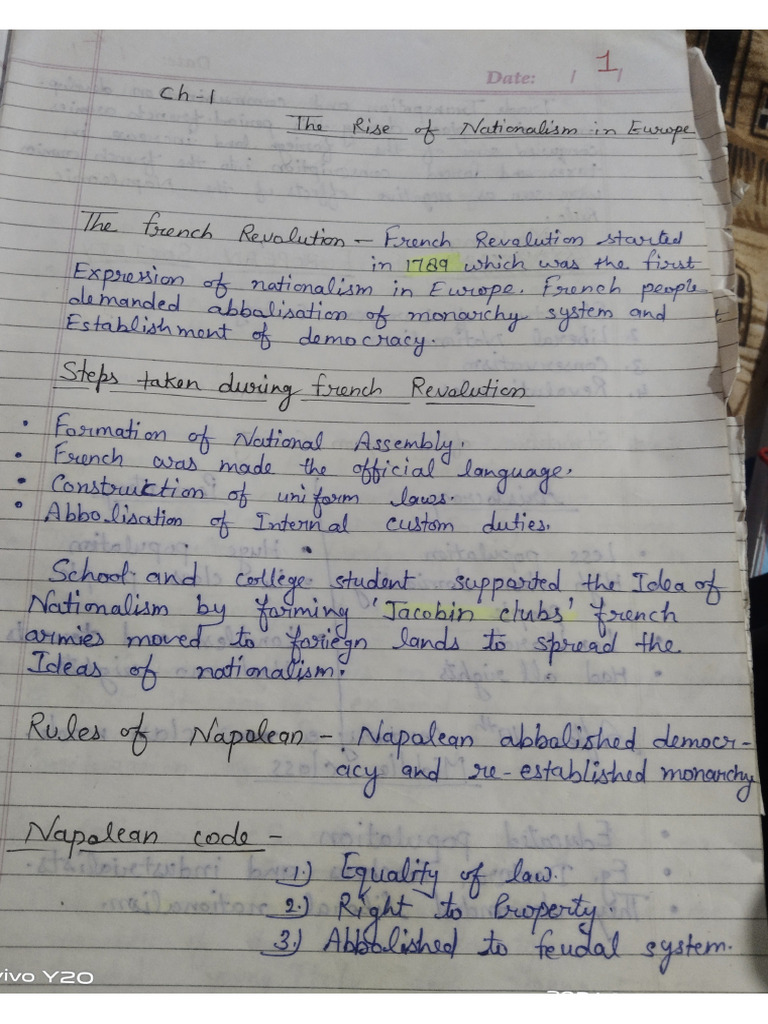 Date: / /
1
Ch-1
The Rise of Nationalism in Europe
The french Revolution - French Revalution started
in 1789 which was the first
Expression of nationalism in Europe. French people
demanded abbalisation of monarchy system and
Establishment of democracy.
Steps taken during french Revalution
• Formation of National Assembly.
• French was made the official language.
• Construiction of uniform laws.
• Abbolisation of Internal custom duties.
School and college student supported the Idea of
Nationalism by forming 'Jacobin clubs' french
armies moved to foriegn lands to spread the
Ideas of nationalism.
Rules of Napolean - Napalean abbalished democr-
acy and re-established monarchy
Napalean code -
1.) Equality of law.
2.) Right to Property.
3.) Abbolished to feudal system.
vivo Y20